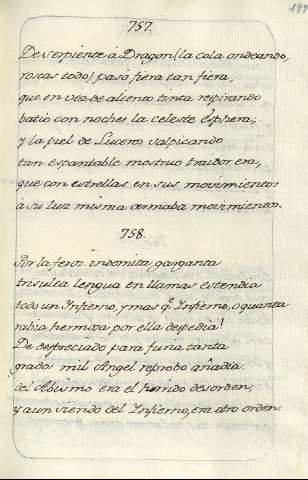 757.
De serpiente à Dragon (la cola ondeando,
roscas todo) pasò fiera tan fiera,
que en vez de aliento tinta respirando
batiò con noches la celeste Esphera;
y la piel de Luceros salpicando
tan espantable mostruo traidor era,
que con estrellas en sus movimientos
à su luz misma armaba movimientos.
758.
Por la feroz indomita garganta
trisulca lengua en llamas estendia
todo un Infierno, y mas qe. Infierno, o quanta
rabia hermosa por ella despedia!
De despreciado para furia tanta
grados mil Angel reprobo añadia:
del Abismo era el horrido desorden,
y aun siendo del Infierno, era otro orden.